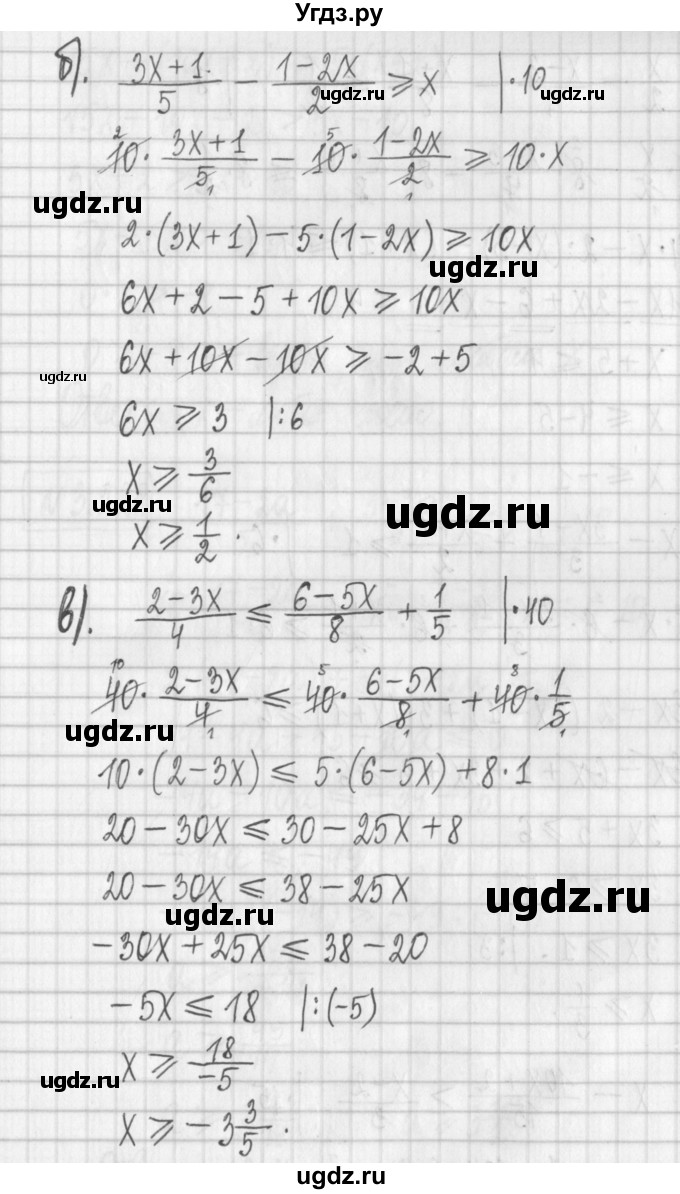 Угдз.ру
б). (3x+1)/5 − (1−2x)/2 ⩾ x |·10
ugdz.ru ugdz.ru
10² · (3x+1)/5₁ − 10⁵ · (1−2x)/2₁ ⩾ 10·x
ugdz.ru
2·(3x+1) − 5·(1−2x) ⩾ 10x
ugdz.ru
6x + 2 − 5 + 10x ⩾ 10x
6x + 10x − 10x ⩾ −2 + 5
ugdz.ru
6x ⩾ 3 |:6
x ⩾ 3/6
ugdz.ru ugdz.ru
x ⩾ 1/2.
в). (2−3x)/4 ⩽ (6−5x)/8 + 1/5 |·40
40¹⁰ · (2−3x)/4₁ ⩽ 40⁵ · (6−5x)/8₁ + 40⁸ · 1/5₁
ugdz.ru
10·(2−3x) ⩽ 5·(6−5x) + 8·1
20 − 30x ⩽ 30 − 25x + 8
20 − 30x ⩽ 38 − 25x
ugdz.ru ugdz.ru
−30x + 25x ⩽ 38 − 20
−5x ⩽ 18 |:(−5)
x ⩾ 18/−5
ugdz.ru
x ⩾ −3 3/5.
ugdz.ru